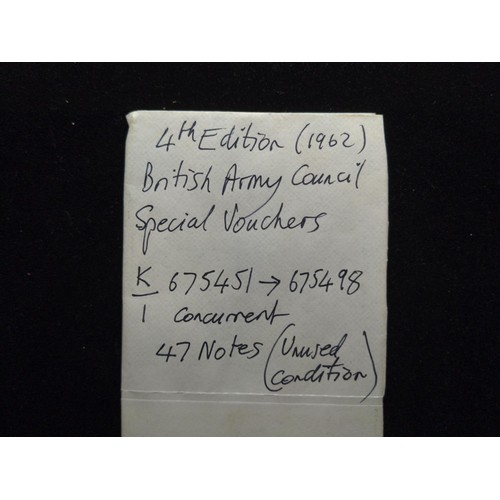 4th Edition (1962)
British Army Council
Special Vouchers
K/1 675451 → 675498
concurrent
47 Notes (Unused
condition)